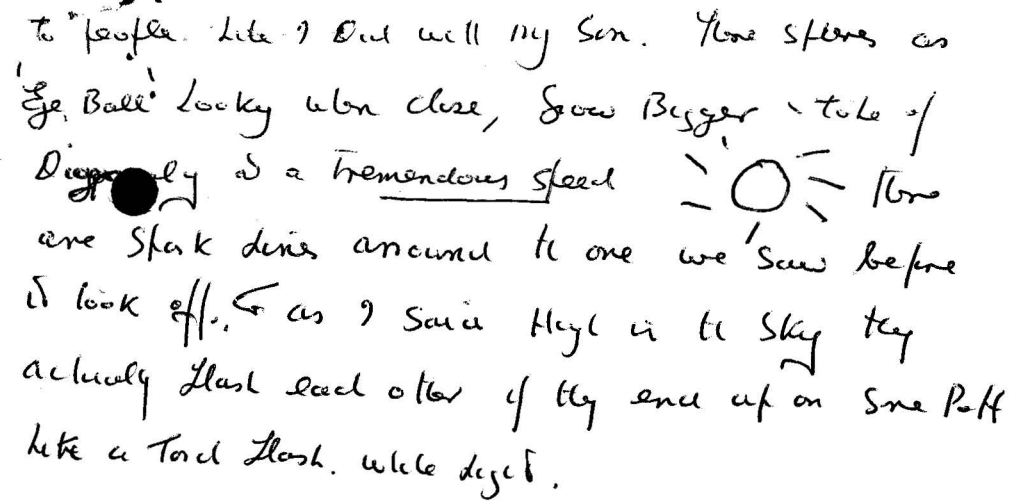 to "people. Like I Did will my Son. These spheres as
'Eye Ball' Looky when close, Grow Bigger & take off
Diagonally at a tremendous speed These
are Spark Lines arround the one we saw before
it took off. as I said High in the Sky they
actually flash each other if they end up on Same Path
Like a Torch flash. white light.